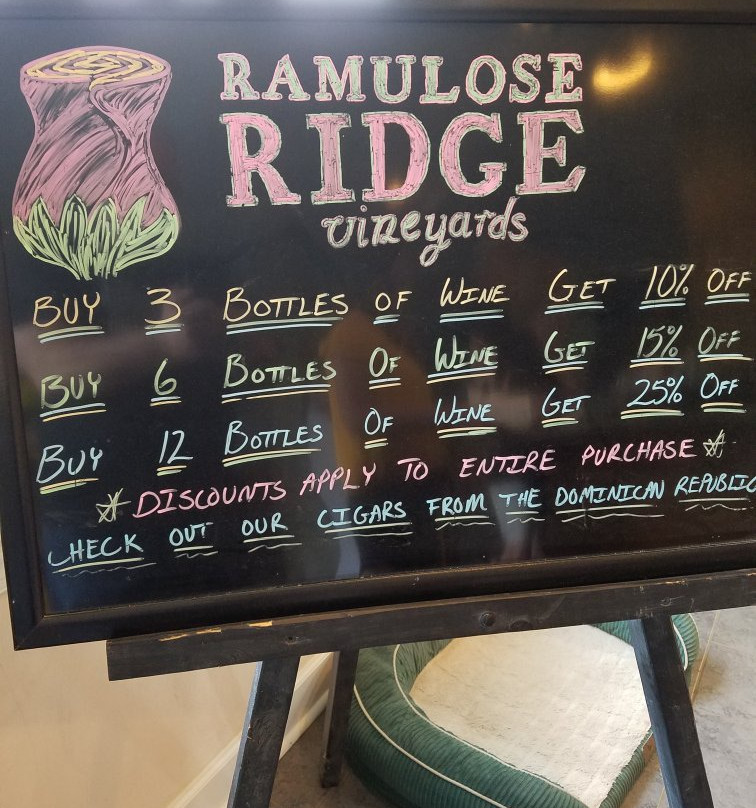 RAMULOSE
RIDGE
vineyards
BUY 3 BOTTLES OF WINE GET 10% OFF
BUY 6 BOTTLES OF WINE GET 15% OFF
BUY 12 BOTTLES OF WINE GET 25% OFF
* DISCOUNTS APPLY TO ENTIRE PURCHASE *
CHECK OUT OUR CIGARS FROM THE DOMINICAN REPUBLIC